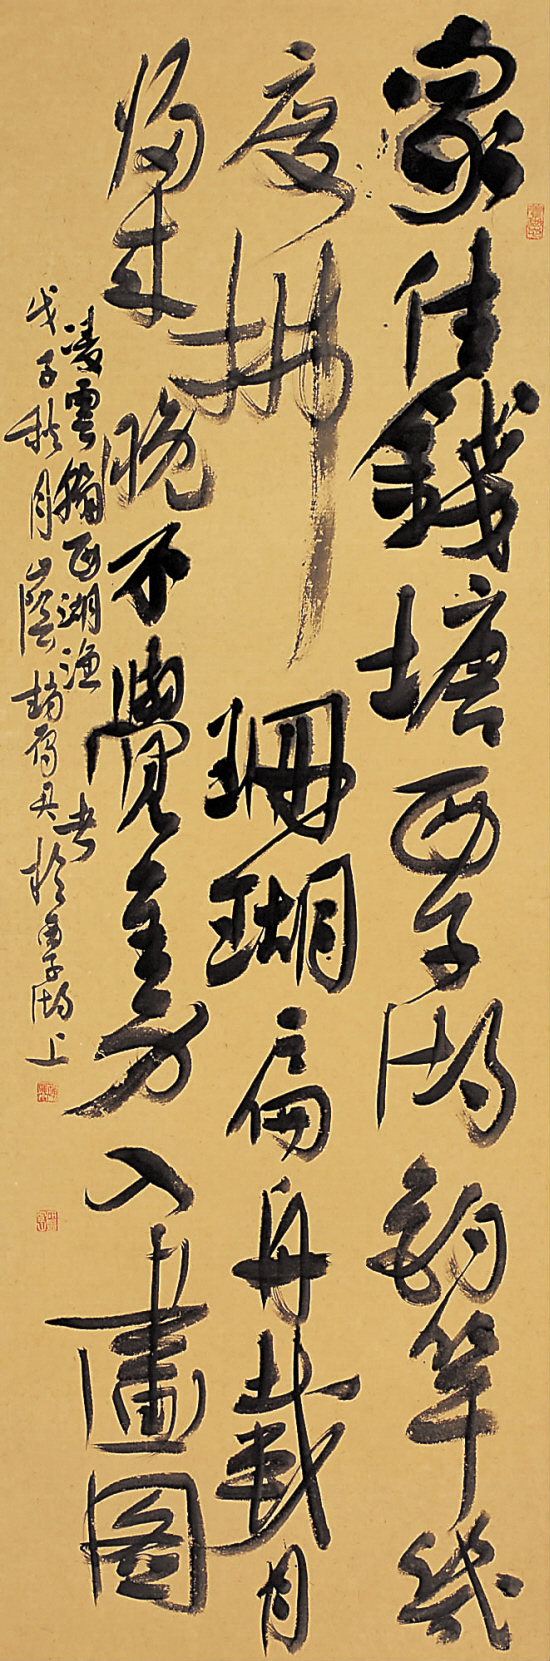 家住錢塘西子湖釣竿幾
度拂珊瑚扁舟載月
歸來晚不覺全身入畫圖
凌雲翰西湖漁者
戊子秋月山陰趙雁君於西子湖上